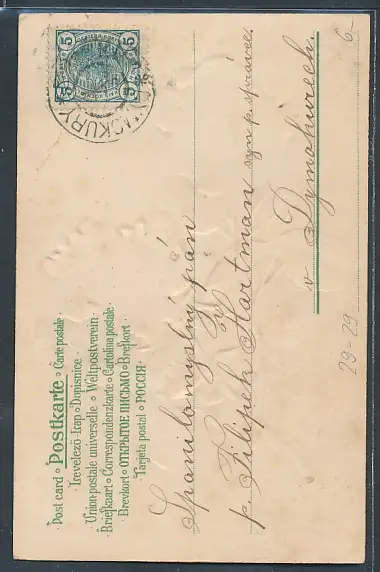 Post card ◦ Postkarte ◦ Carte postale ·
· Levelező-Lap ◦ Dopisnice ·
Union postale universelle ◦ Weltpostverein ·
· Briefkaart ◦ Correspondenzkarte ◦ Cartolina postale ·
· Brevkort ◦ ОТКРЫТОЕ ПИСЬМО ◦ Brefkort ·
· Tarjeta postal ◦ РОССІЯ ·
5 5
5 5
Spanilomyslný pán
p. Filipek Hartman syn p. správce
v Dymokurech.
6-
29-29